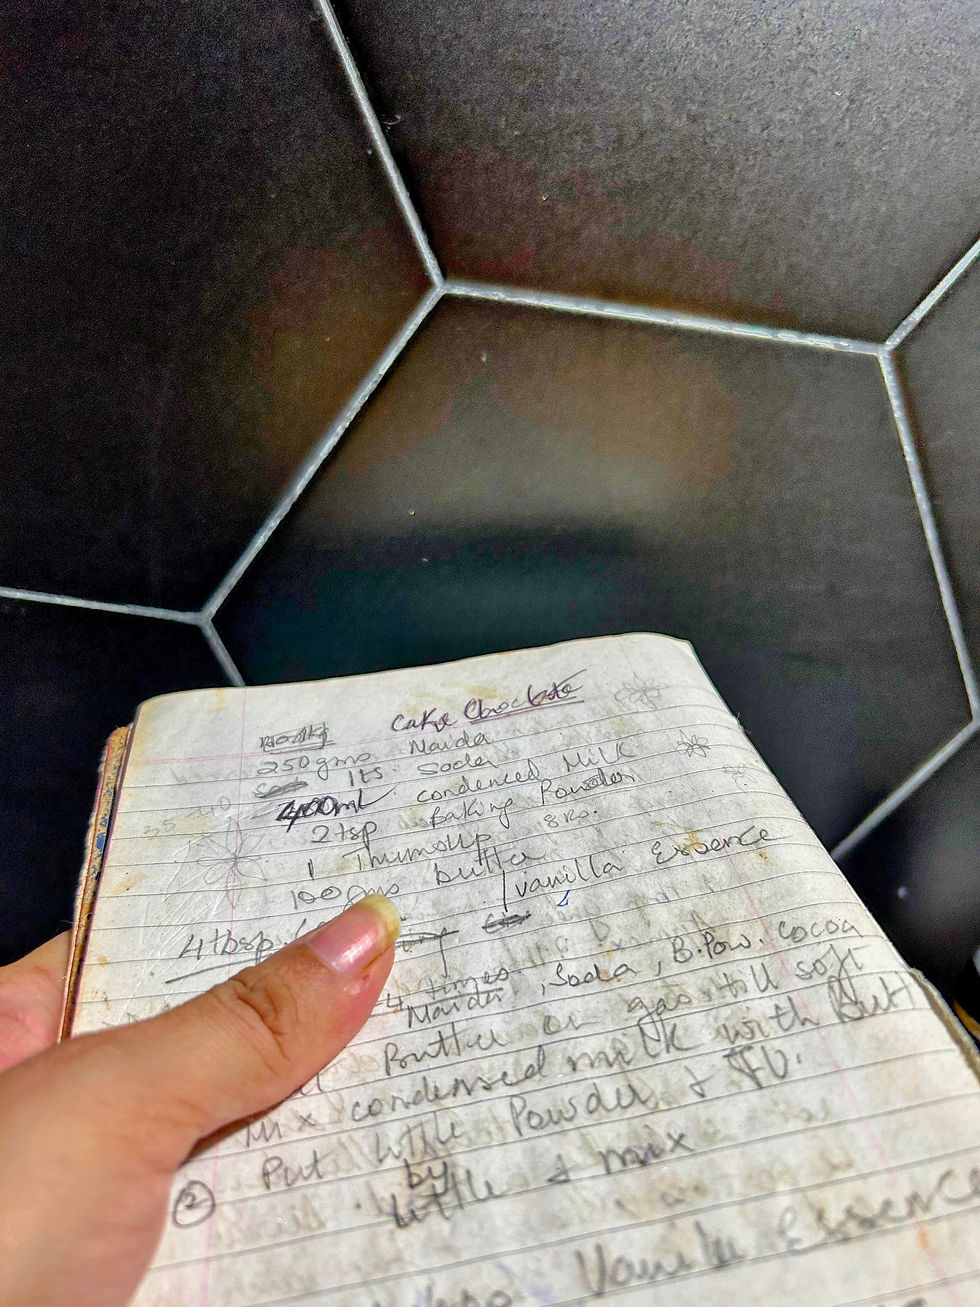 Cake Chocolate
250gms Maida
1ts. Soda
400ml condensed Milk
2tsp Baking Powder
1 ThumsUp 8Rs.
100gms butter
1 vanilla Essence
4tbsp.
4 times
Maida, Soda, B.Pow. cocoa
Butter on gas till soft
Mix condensed milk with Butt
Put little Powder & TU.
by
② little & mix
Vanilla Essence